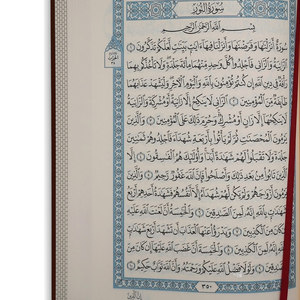 سُورَةُ النُّورِ
بِسْمِ اللَّهِ الرَّحْمَٰنِ الرَّحِيمِ
سُورَةٌ أَنزَلْنَٰهَا وَفَرَضْنَٰهَا وَأَنزَلْنَا فِيهَآ ءَايَٰتٍۭ بَيِّنَٰتٍ لَّعَلَّكُمْ تَذَكَّرُونَ ١
ٱلزَّانِيَةُ وَٱلزَّانِى فَٱجْلِدُوا۟ كُلَّ وَٰحِدٍ مِّنْهُمَا مِا۟ئَةَ جَلْدَةٍ وَلَا تَأْخُذْكُم بِهِمَا
رَأْفَةٌ فِى دِينِ ٱللَّهِ إِن كُنتُمْ تُؤْمِنُونَ بِٱللَّهِ وَٱلْيَوْمِ ٱلْءَاخِرِ وَلْيَشْهَدْ عَذَابَهُمَا
طَآئِفَةٌ مِّنَ ٱلْمُؤْمِنِينَ ٢ ٱلزَّانِى لَا يَنكِحُ إِلَّا زَانِيَةً أَوْ مُشْرِكَةً وَٱلزَّانِيَةُ
لَا يَنكِحُهَآ إِلَّا زَانٍ أَوْ مُشْرِكٌ وَحُرِّمَ ذَٰلِكَ عَلَى ٱلْمُؤْمِنِينَ ٣ وَٱلَّذِينَ
يَرْمُونَ ٱلْمُحْصَنَٰتِ ثُمَّ لَمْ يَأْتُوا۟ بِأَرْبَعَةِ شُهَدَآءَ فَٱجْلِدُوهُمْ ثَمَٰنِينَ
جَلْدَةً وَلَا تَقْبَلُوا۟ لَهُمْ شَهَٰدَةً أَبَدًا وَأُو۟لَٰٓئِكَ هُمُ ٱلْفَٰسِقُونَ ٤ إِلَّا
ٱلَّذِينَ تَابُوا۟ مِنۢ بَعْدِ ذَٰلِكَ وَأَصْلَحُوا۟ فَإِنَّ ٱللَّهَ غَفُورٌ رَّحِيمٌ ٥ وَٱلَّذِينَ
يَرْمُونَ أَزْوَٰجَهُمْ وَلَمْ يَكُن لَّهُمْ شُهَدَآءُ إِلَّآ أَنفُسُهُمْ فَشَهَٰدَةُ أَحَدِهِمْ أَرْبَعُ
شَهَٰدَٰتٍۭ بِٱللَّهِ إِنَّهُۥ لَمِنَ ٱلصَّٰدِقِينَ ٦ وَٱلْخَٰمِسَةُ أَنَّ لَعْنَتَ ٱللَّهِ عَلَيْهِ
إِن كَانَ مِنَ ٱلْكَٰذِبِينَ ٧ وَيَدْرَؤُا۟ عَنْهَا ٱلْعَذَابَ أَن تَشْهَدَ أَرْبَعَ شَهَٰدَٰتٍۭ
بِٱللَّهِ إِنَّهُۥ لَمِنَ ٱلْكَٰذِبِينَ ٨ وَٱلْخَٰمِسَةَ أَنَّ غَضَبَ ٱللَّهِ عَلَيْهَآ إِن كَانَ مِنَ
ٱلصَّٰدِقِينَ ٩ وَلَوْلَا فَضْلُ ٱللَّهِ عَلَيْكُمْ وَرَحْمَتُهُۥ وَأَنَّ ٱللَّهَ تَوَّابٌ حَكِيمٌ ١٠
٣٥٠